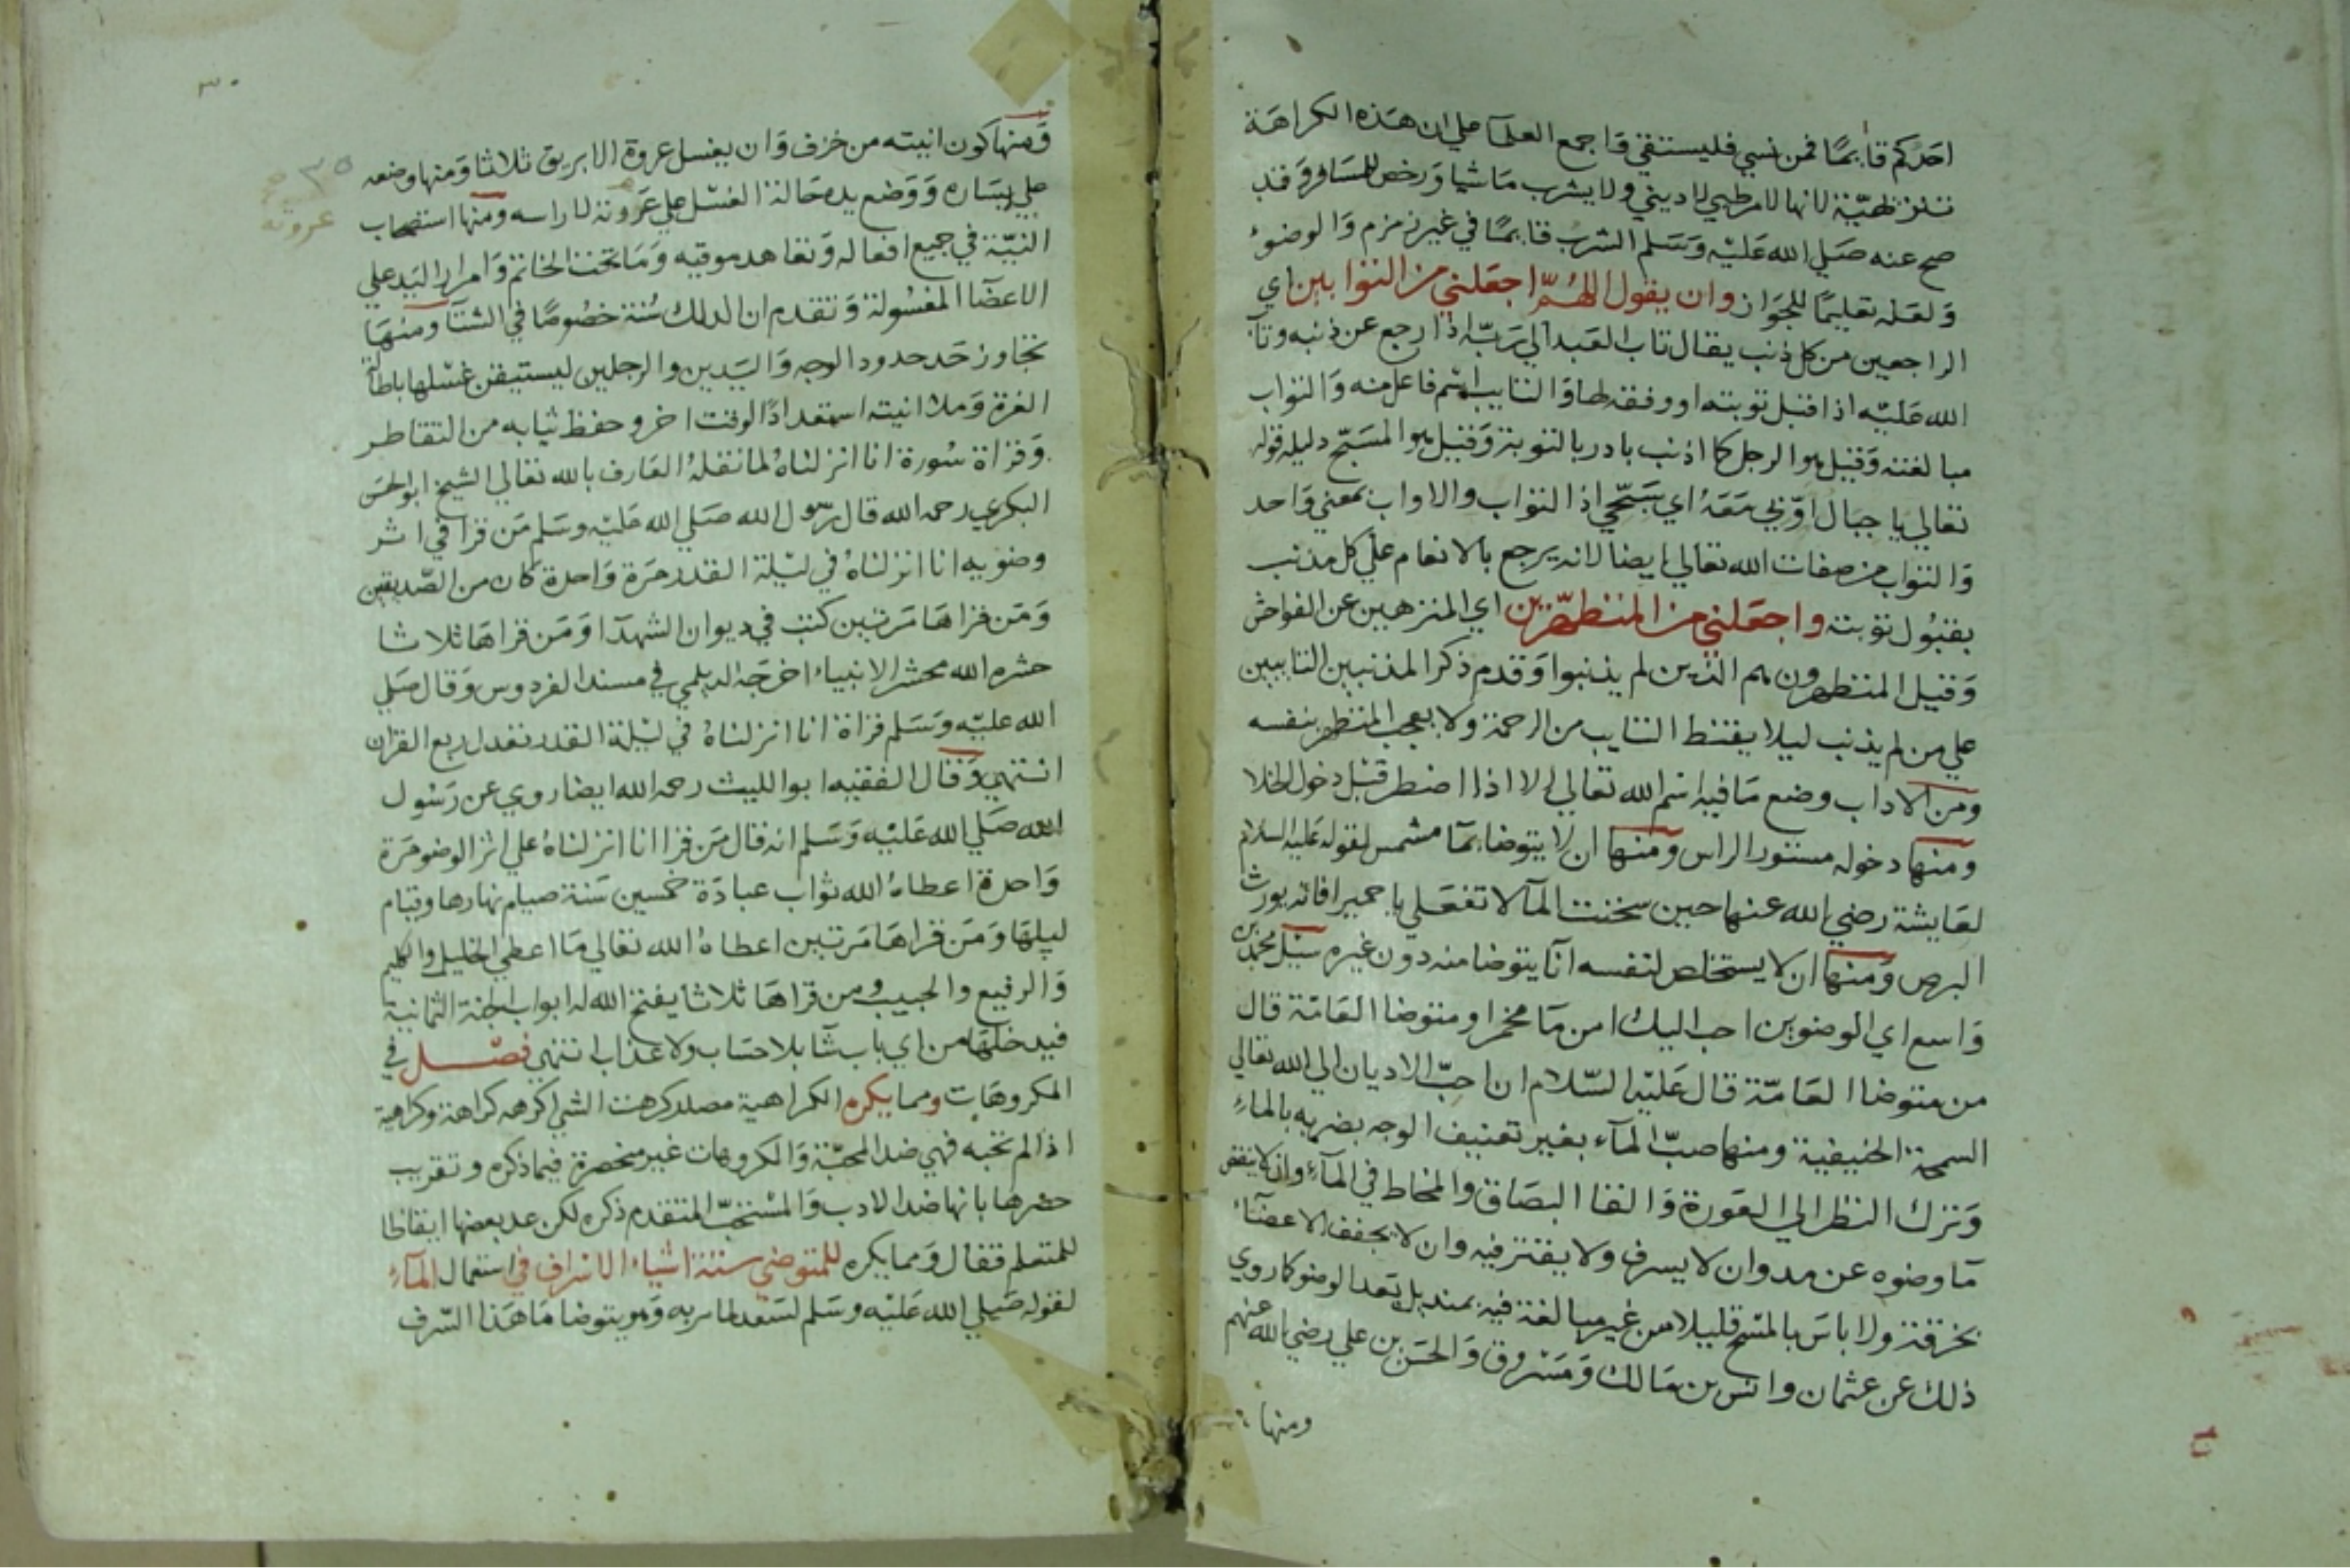 احدكم قائما فمن نسي فليستقي واجمع العلمآ علي ان هذه الكراهة
تنزيهية لانها لامر طبي لا ديني ولا يشرب ماشيا ورخص للمسافر وقد
صح عنه صلي الله عليه وسلم الشرب قايما في غير زمزم والوضوء
ولعله تعليما للجواز وان يقول اللهم اجعلني من التوابين اي
الراجعين من كل ذنب يقال تاب العبد الي ربه اذا رجع عن ذنبه وتاب
الله عليه اذا قبل توبته او وفقه لها والتايب اسم فاعل منه والتواب
مبالغته وقيل هو الرجل كلما اذنب بادر بالتوبة وقيل هو المسبح دليله قوله
تعالي يا جبال اوبي معه اي سبحي اذا التواب والاواب بمعني واحد
والتواب من صفات الله تعالي ايضا لانه يرجع بالانعام علي كل مذنب
بقبول توبته واجعلني من المتطهرين اي المنزهين عن الفواحش
وقيل المتطهرون هم الذين لم يذنبوا وقدم ذكر المذنبين التايبين
علي من لم يذنب ليلا يقنط التايب من الرحمة ولا يعجب المتطهر بنفسه
ومن الاداب وضع ما فيه اسم الله تعالي الا اذا اضطر قبل دخول الخلا
ومنها دخوله مستور الراس ومنها ان لا يتوضا بمآ مشمس لقوله عليه السلام
لعايشة رضي الله عنها حين سخنت المآ لا تفعلي يا حميرا فانه يورث
البرص ومنها ان لا يستخلص لنفسه انآ يتوضا منه دون غيره سيل محمد بن
واسع اي الوضوين احب اليك امن ما مخمر او متوضا العامة قال
من متوضا العامة قال عليه السلام ان احب الاديان الي الله تعالي
السمحة الحنيفية ومنها صب المآء بغير تعنيف الوجه بضربه بالماء
وترك النظر الي العورة والقا البصاق والمخاط في المآء وان لا ينقص
مآ وضوه عن مد وان لا يسرف ولا يقتر فيه وان لا يجفف الاعضآء
بخرقة ولا باس بالمسح قليلا من غير مبالغة فيه بمنديل بعد الوضو كما روي
ذلك عن عثمان وانس بن مالك ومسروق والحسن بن علي رضي الله عنهم
ومنها
٣٠
ومنها كون انيته من خزف وان يغسل عروة الابريق ثلاثا ومنها وضعه
علي يساره ووضع يده حالة الغسل علي عروته لا راسه ومنها استصحاب
النية في جميع افعاله وتعاهد موقيه وما تحت الخاتم وامرار اليد علي
الاعضآ المغسولة وتقدم ان الدلك سنة خصوصا في الشتآ ومنها
تجاوز حد حدود الوجه واليدين والرجلين ليستيقن غسلها باطالة
الغرة وملا انيته استعدادا لوقت اخر وحفظ ثيابه من التقاطر
وقراة سورة انا انزلناه لما نقله العارف بالله تعالي الشيخ ابو الحسن
البكري رحمه الله قال رسول الله صلي الله عليه وسلم من قرا في اثر
وضويه انا انزلناه في ليلة القدر مرة واحدة كان من الصديقين
ومن قراها مرتين كتب في ديوان الشهدآ ومن قراها ثلاثا
حشره الله محشر الانبياء اخرجه الديلمي في مسند الفردوس وقال صلي
الله عليه وسلم قراة انا انزلناه في ليلة القدر تعدل ربع القران
انتهي وقال الفقيه ابو الليث رحمه الله ايضا روي عن رسول
الله صلي الله عليه وسلم انه قال من قرا انا انزلناه علي اثر الوضو مرة
واحدة اعطاه الله ثواب عبادة خمسين سنة صيام نهارها وقيام
ليلها ومن قراها مرتين اعطاه الله تعالي ما اعطي الخليل والكليم
والرفيع والحبيب ومن قراها ثلاثا يفتح الله له ابواب الجنة الثمانية
فيدخلها من اي باب شآ بلا حساب ولا عذاب انتهي فصل في
المكروهات ومما يكره الكراهية مصدر كرهت الشي اكرهه كراهة وكراهية
اذا لم تحبه فهي ضد المحبة والمكروهات غير منحصرة فيما ذكره وتقريب
حصرها بانها ضد الادب والمستحب المتقدم ذكره لكن عد بعضها ايقاظا
للمتعلم فقال ومما يكره للمتوضي ستة اشياء الاسراف في استعمال المآء
لقوله صلي الله عليه وسلم لسعد لما مر به وهو يتوضا ما هذا السرف
عروته